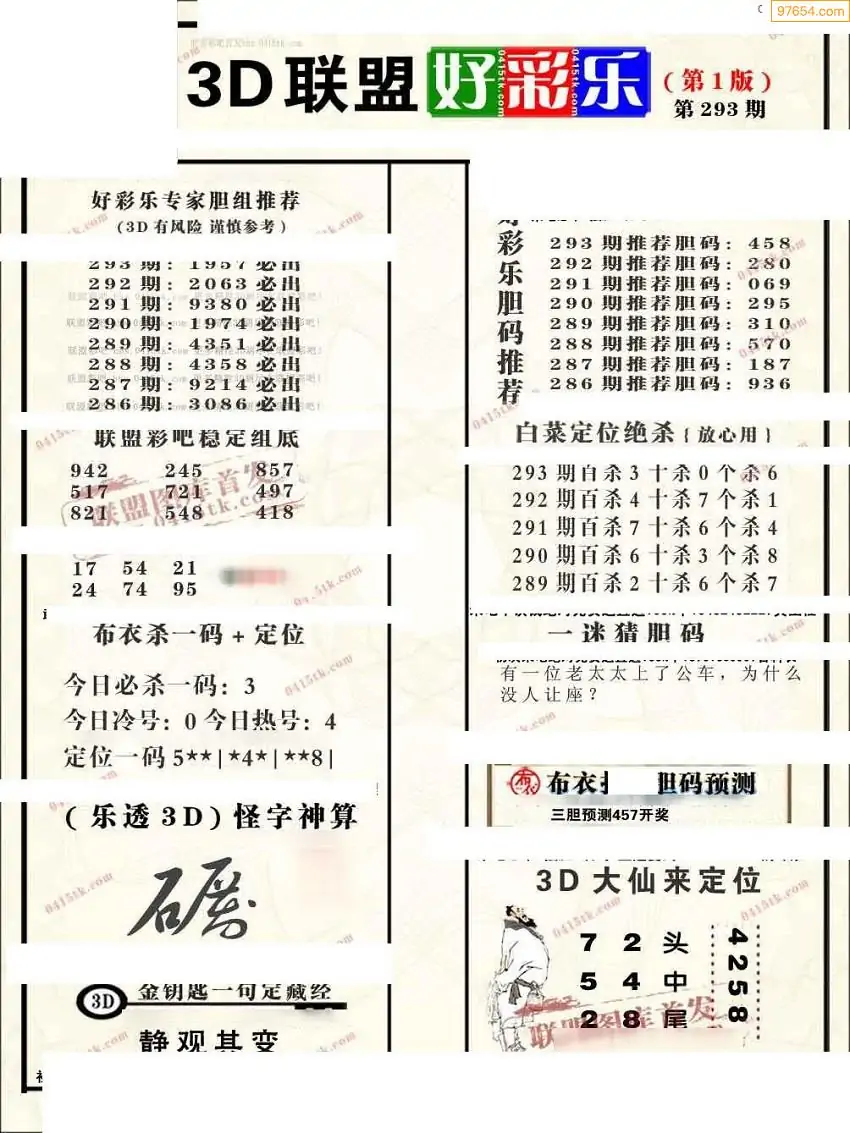 97654.com
3D联盟 好彩乐
(第1版)
第293期
好彩乐专家胆组推荐
(3D有风险 谨慎参考)
293期: 1957必出
292期: 2063必出
291期: 9380必出
290期: 1974必出
289期: 4351必出
288期: 4358必出
287期: 9214必出
286期: 3086必出
联盟彩吧稳定组底
942 245 857
517 721 497
821 548 418
联盟图库首发
17 54 21
24 74 95
布衣杀一码+定位
今日必杀一码: 3
今日冷号: 0 今日热号: 4
定位一码5**|*4*|**8|
(乐透3D)怪字神算
3D
金钥匙一句定藏经
静观其变
好彩乐胆码推荐
293期推荐胆码: 458
292期推荐胆码: 280
291期推荐胆码: 069
290期推荐胆码: 295
289期推荐胆码: 310
288期推荐胆码: 570
287期推荐胆码: 187
286期推荐胆码: 936
白菜定位绝杀{放心用}
293期百杀3十杀0个杀6
292期百杀4十杀7个杀1
291期百杀7十杀6个杀4
290期百杀6十杀3个杀8
289期百杀2十杀6个杀7
一迷猜胆码
有一位老太太上了公车,为什么
没人让座?
布衣 胆码预测
三胆预测457开奖
3D大仙来定位
7 2 头
5 4 中
2 8 尾
4258
联盟图库首发
0415tk.com